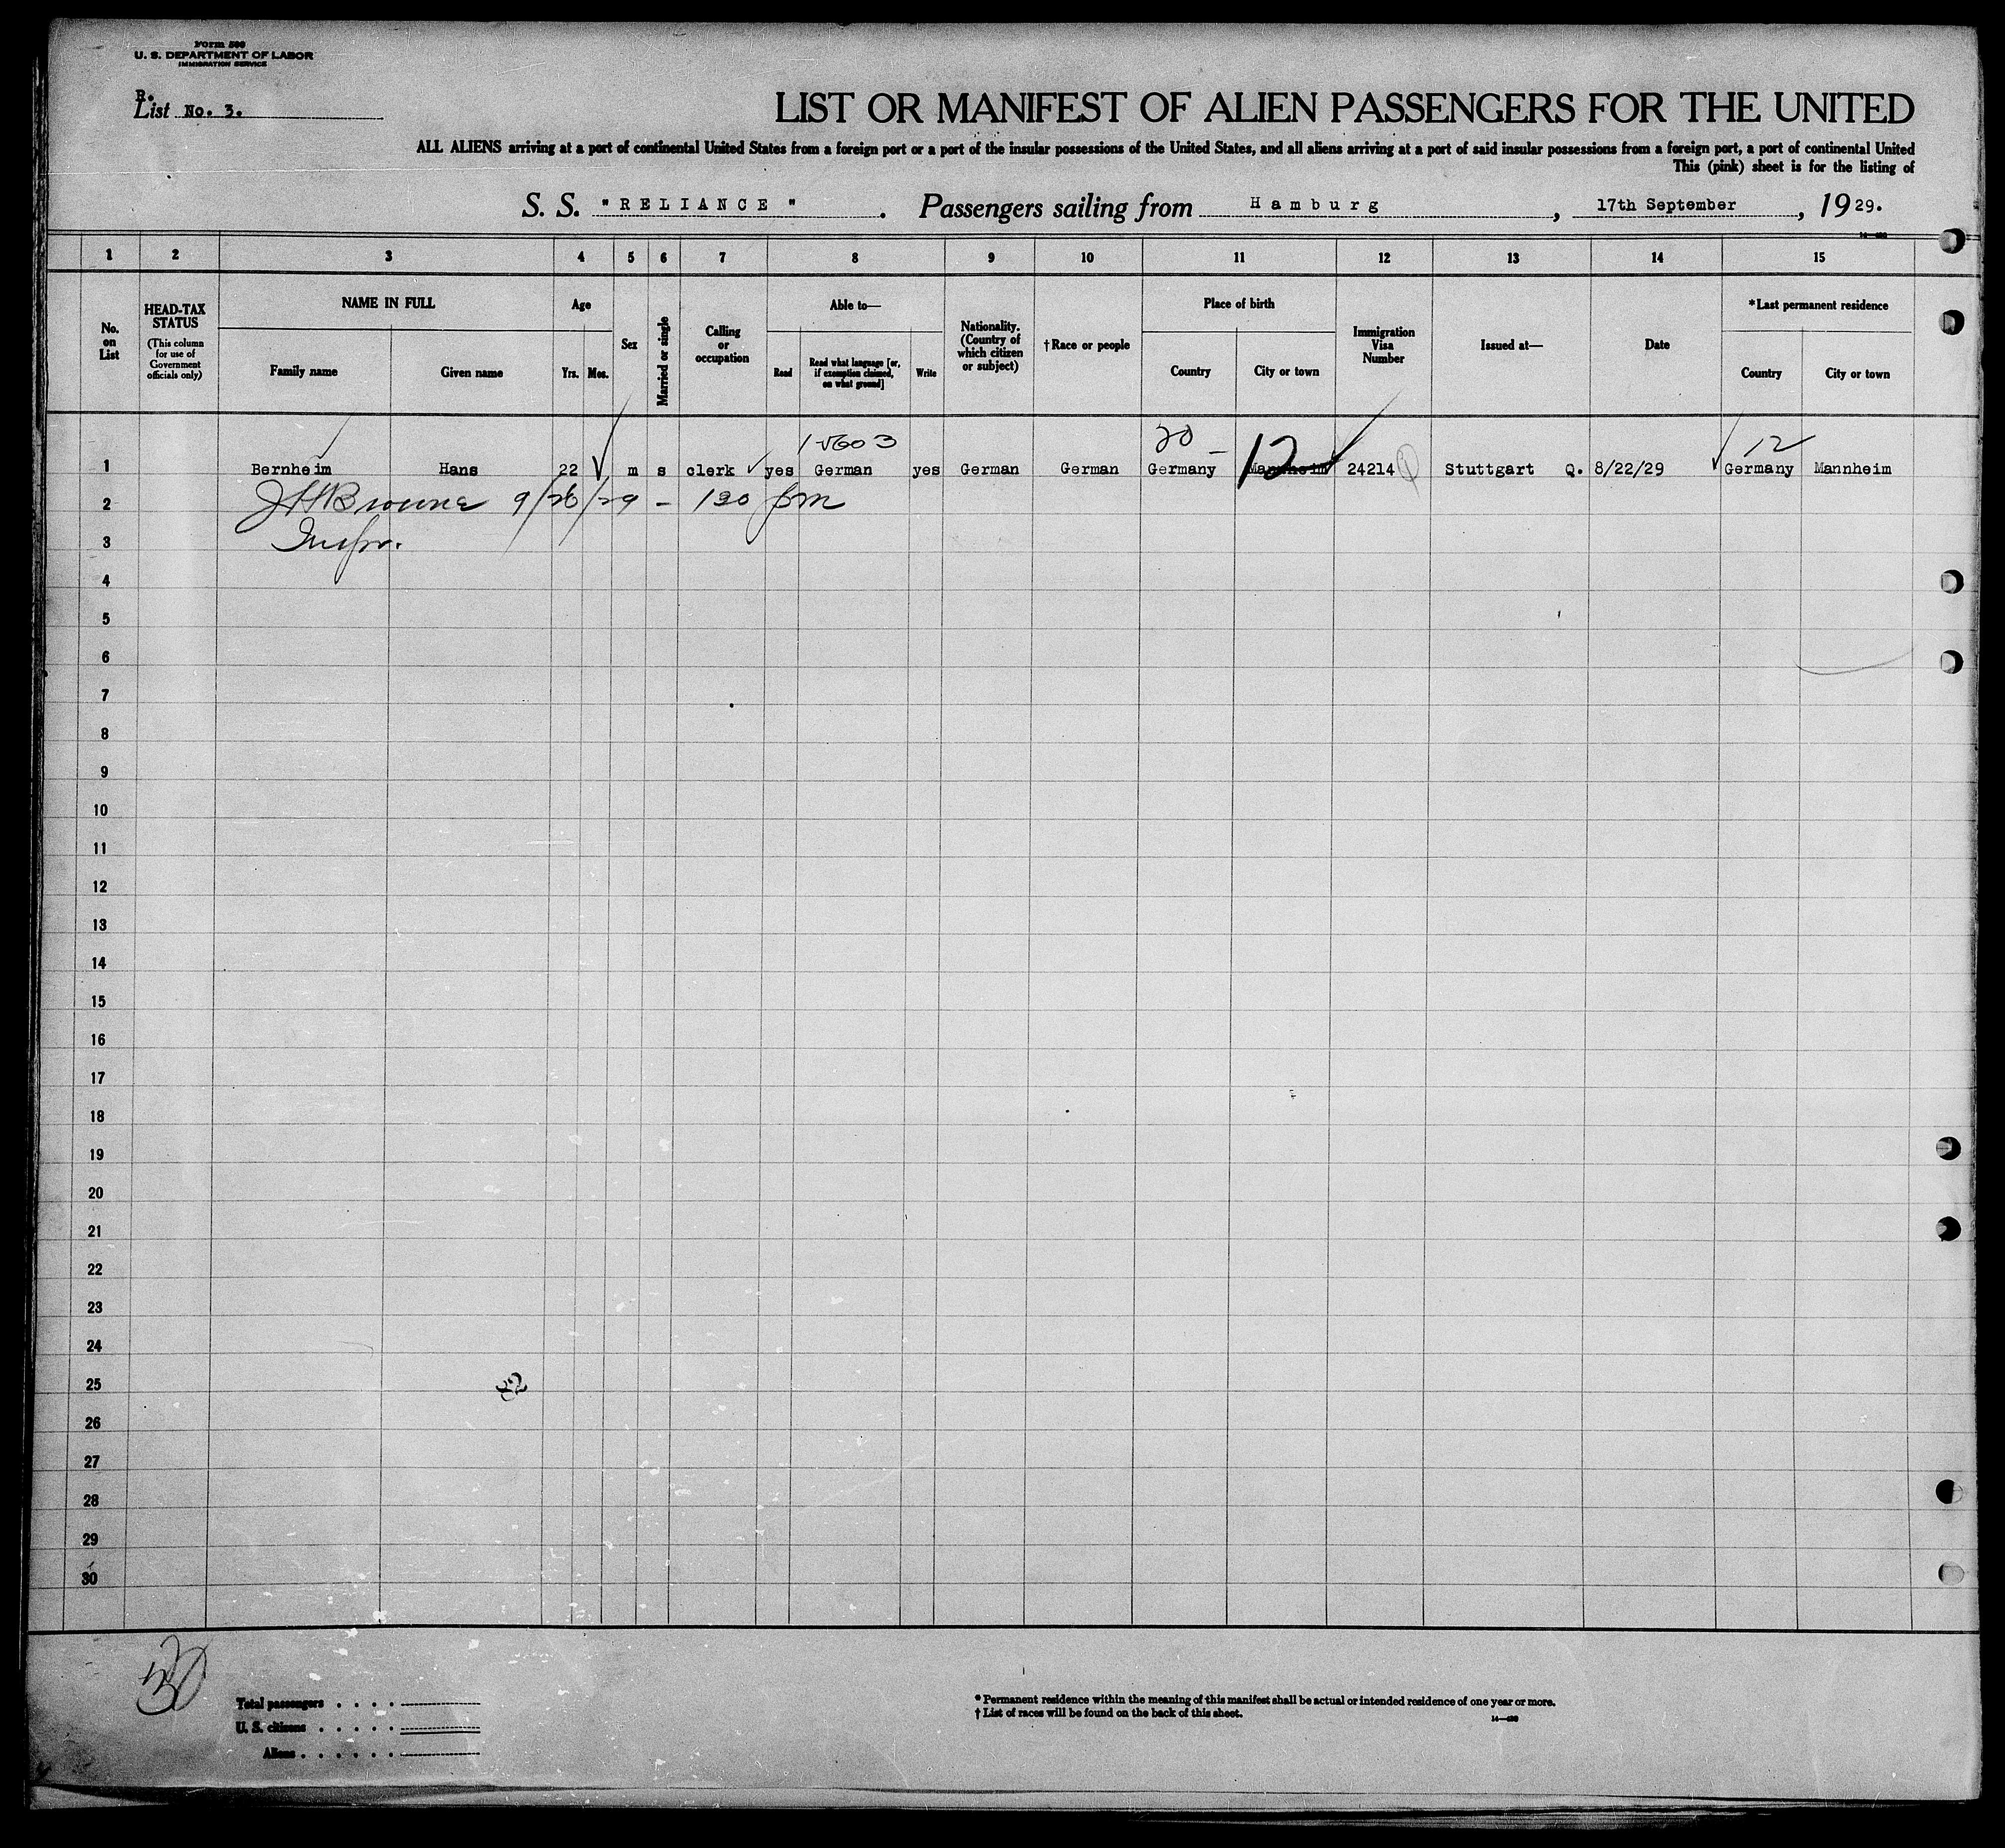 Form 500
U. S. DEPARTMENT OF LABOR
IMMIGRATION SERVICE
R.
List No. 3.
LIST OR MANIFEST OF ALIEN PASSENGERS FOR THE UNITED
ALL ALIENS arriving at a port of continental United States from a foreign port or a port of the insular possessions of the United States, and all aliens arriving at a port of said insular possessions from a foreign port, a port of continental United
This (pink) sheet is for the listing of
S. S. "RELIANCE". Passengers sailing from Hamburg, 17th September, 1929.
1 2 3 4 5 6 7 8 9 10 11 12 13 14 15
No. on List
HEAD-TAX STATUS (This column for use of Government officials only)
NAME IN FULL Family name Given name
Age Yrs. Mos.
Sex
Married or single
Calling or occupation
Able to— Read Read what language [or, if exemption claimed, on what ground] Write
Nationality. (Country of which citizen or subject)
†Race or people
Place of birth Country City or town
Immigration Visa Number
Issued at—
Date
*Last permanent residence Country City or town
20 – 12
1 Bernheim Hans 22 m s clerk yes German yes German German Germany 12 Mannheim 24214 Stuttgart Q. 8/22/29 Germany Mannheim
2 JHBrowne 9/26/29 – 130 pm
3 Inspr.
4
5
6
7
8
9
10
11
12
13
14
15
16
17
18
19
20
21
22
23
24
25
26
27
28
29
30
Total passengers . . . .
U. S. citizens . . . . .
Aliens . . . . . .
* Permanent residence within the meaning of this manifest shall be actual or intended residence of one year or more.
† List of races will be found on the back of this sheet.